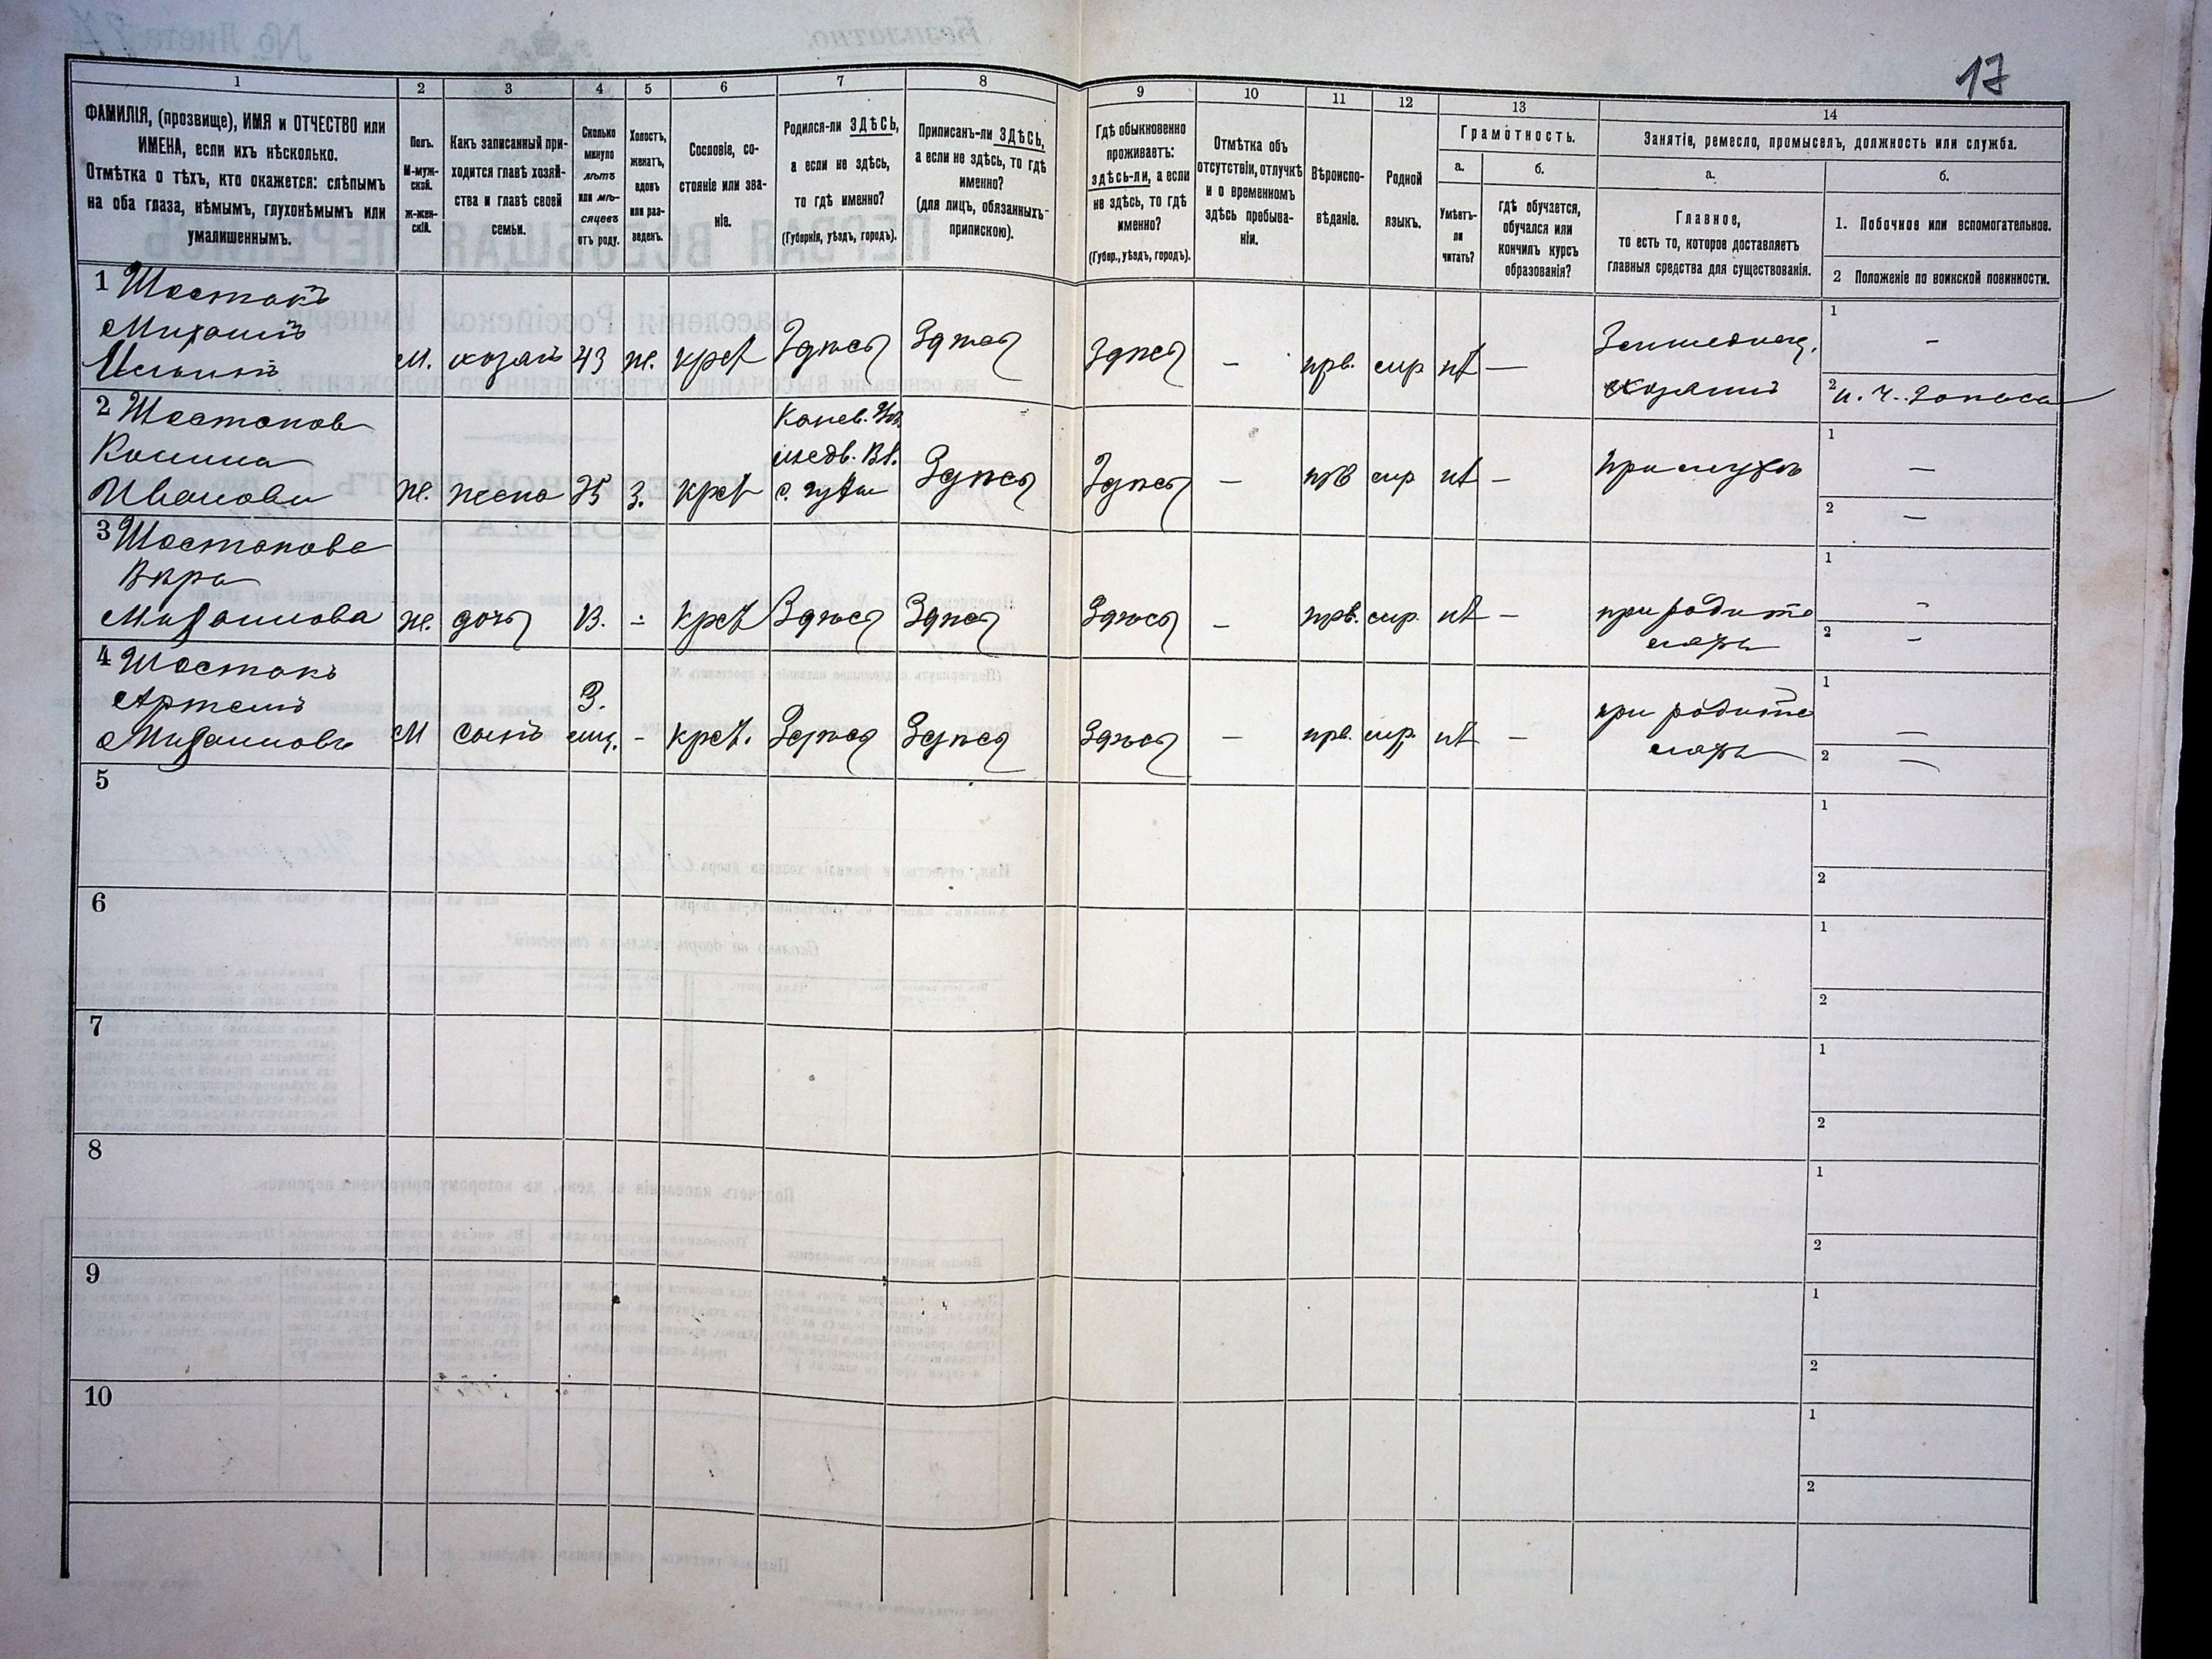 17
1
2
3
4
5
6
7
8
9
10
11
12
13
14
ФАМИЛІЯ, (прозвище), ИМЯ и ОТЧЕСТВО или
ИМЕНА, если ихъ нѣсколько.
Отмѣтка о тѣхъ, кто окажется: слѣпымъ
на оба глаза, нѣмымъ, глухонѣмымъ или
умалишеннымъ.
Полъ.
М-муж-
ской.
Ж-жен-
скій.
Какъ записанный при-
ходится главѣ хозяй-
ства и главѣ своей
семьи.
Сколько
минуло
лѣтъ
или мѣ-
сяцевъ
отъ роду.
Холостъ,
женатъ,
вдовъ
или раз-
веденъ.
Сословіе, со-
стояніе или зва-
ніе.
Родился-ли ЗДѢСЬ,
а если не здѣсь,
то гдѣ именно?
(Губернія, уѣздъ, городъ).
Приписанъ-ли ЗДѢСЬ,
а если не здѣсь, то гдѣ
именно?
(для лицъ, обязанныхъ
припискою).
Гдѣ обыкновенно
проживаетъ:
здѣсь-ли, а если
не здѣсь, то гдѣ
именно?
(Губер., уѣздъ, городъ).
Отмѣтка объ
отсутствіи, отлучкѣ
и о временномъ
здѣсь пребыва-
ніи.
Вѣроиспо-
вѣданіе.
Родной
языкъ.
Грамотность.
а.
Умѣетъ-
ли
читать?
б.
гдѣ обучается,
обучался или
кончилъ курсъ
образованія?
Занятіе, ремесло, промыселъ, должность или служба.
а.
Главное,
то есть то, которое доставляетъ
главныя средства для существованія.
б.
1. Побочное или вспомогательное.
2 Положеніе по воинской повинности.
1 Шостакъ
Михаилъ
М. хозяинъ 43 ж. крест Здѣсь Здѣсь Здѣсь – прв. мр нѣт –
Землед
хозяинъ
1 –
2 запаса
2 Шостаков
Ивановн
ж. жена 35 З. крест
Канев. Уѣз.
с.
Здѣсь Здѣсь – прв мр нѣт –
при мужѣ
1 –
2 –
3 Шостакова
Вѣра
Михаилова ж. дочь 13. – крест Здѣсь Здѣсь Здѣсь – прв. мр. нѣт –
при родите
ляхъ
1 –
2 –
4 Шостакъ
Артемъ
Михаиловъ М сынъ 3. мц. – крест. Здѣсь Здѣсь Здѣсь – прв. мр нѣт –
при родите
ляхъ
1 –
2 –
5
1
2
6
1
2
7
1
2
8
1
2
9
1
2
10
1
2